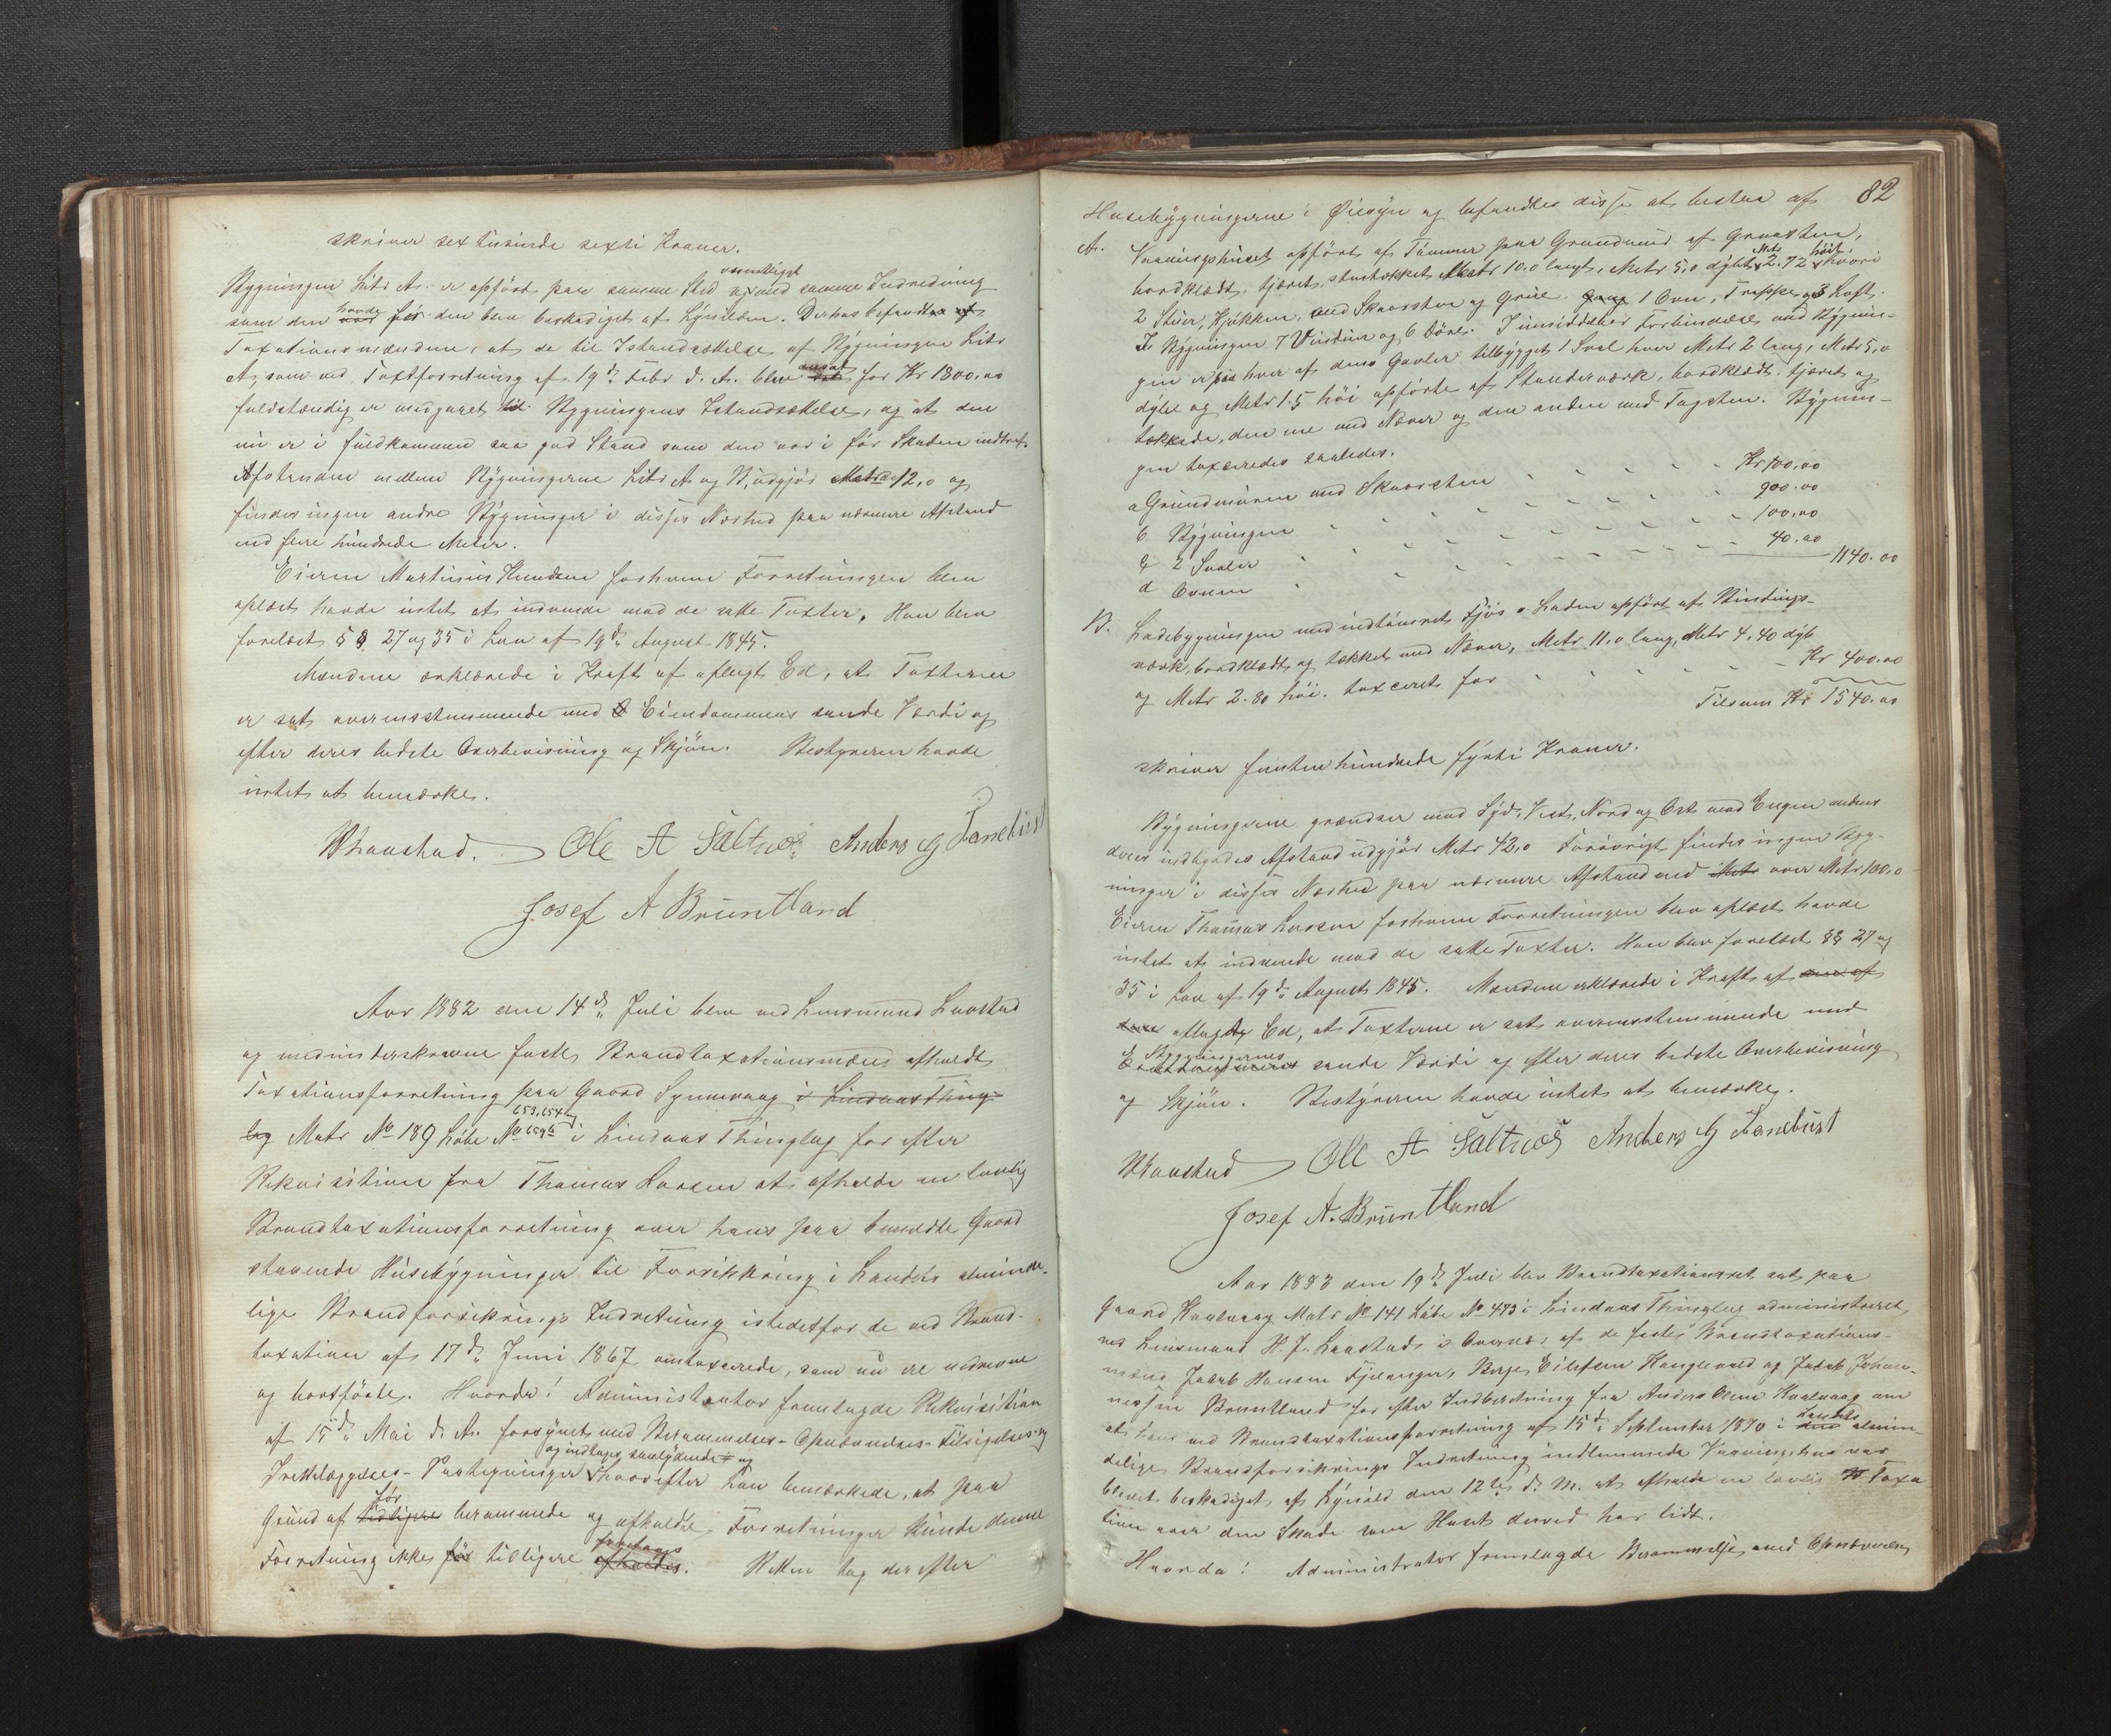 skriver sextusinde sexti Kroner.
Bygningen Litr A. er opført paa samme Sted og med væsentligst samme Indredning
som den havde før den blev beskadiget af Lynilden. Derhos befandt
Taxationsmændene, at de til Istandsættelse af Bygningen Litr
A, som ved Taxtforretning af 19de Febr d. A. blev ansat for Kr 1800,00
fuldstændig er medgaaet til Bygningens Istandsættelse, og at den
nu er i fuldkommen saa god Stand som den var i før Skaden indtraf.
Afstanden mellem Bygningerne Litr A og B, udgjør Metr 12,0 og
findes ingen andre Bygninger i disses Nærhed paa nærmere Afstand
end flere hundrede Meter.
Eieren Martinus Knudsen forhvem Forretningen blev
oplæst havde intet at indvende mod de satte Taxter. Han blev
forelæst §§ 27 og 35 i Lov af 19de August 1845.
Mændene erklærede i Kraft af aflagt Ed, at Taxterne
er sat overensstemmende med Eiendommens sande Værdi og
efter deres bedste Overbevisning og Skjøn. Bestyreren havde
intet at bemærke.
Ole A Saltnes Anders G Fanebust
Josef A Bruntland
Aar 1882 den 14de Juli blev ved Lensmand Laastad
og medunderskrevne faste Brandtaxationsmænd afholdt
Taxationsforretning paa Gaard Synnevaag i Lindaas Thing-
lag Matr No 189 Løbe No 653, 654 og 659a i Lindaas Thinglag for efter
Rekvisition fra Thomas Larsen at afholde en lovlig
Brandtaxationsforretning over hans paa bemeldte Gaard
staaende Husebygninger til Forsikkring i Landets alminde-
lige Brandforsikrings Indretning istedetfor de ved Brand-
taxation af 17de Juni 1867 omtaxerede, som nu ere nedrevne
og bortførte. Hvorda! Administrator fremlagde Rekvisition
af 15de Mai d. A. forsynet med Berammelses- Opnævnelses- Tilsigelses- og
Irettelæggelses- Paategninger og indtages saalydende og hvorefter han bemærkede, at paa
Grund af før tidligere berammede og afholdte Forretninger kunde denne
Forretning ikke før tidligere foretages afholdes. Retten tog derefter
82
Husebygningerne i Øiesyn og befandtes disse at bestaa af
A. Vaaningshuset opført af Tømmer paa Grundmur af Graasten,
bordklædt, tjæret, stentækket Metr 10,0 langt, Metr 5,0 dybt, Metr 2.72 høit, hvori
2 Stuer, Kjøkken, med Skorsten og Grue. 1 Ovn, Trappe og 3 Loft.
I Bygningen 7 Vinduer og 6 Døre. I umiddelbar Forbindelse med Bygnin-
gen er paa hver af dens Gavler tilbygget 1 Sval hver Metr 2 lang, Metr 5,0
dybe og Metr 1.5 høi opførte af Standerværk, bordklædt, tjæret og
tækkede, den ene med Næver og den anden med Tagsten. Bygnin-
gen taxeredes saaledes.
a Grundmuren med Skorsten Kr 100,00
b Bygningen 900.00
c 2 Svaler 100,00
d Ovnen 40.00
1140.00
B. Ladebygningen med indtømret Fjøs o. Laden opført af Bindings-
værk, bordklædt og tækket med Næver, Metr 11.0 lang, Metr 4,40 dyb
og Metr 2.80 høi. taxeret for Kr 400.00
Tilsam Kr 1540.00
skriver femtenhundrede fyrti Kroner.
Bygningerne grændser mod Syd, Vest, Nord og Øst mod Engen
deres indbyrdes Afstand udgjør Metr 42,0 Forøvrigt findes ingen Byg-
ninger i disses Nærhed paa nærmere Afstand end Metr over Metr 100.0
Eieren Thomas Larsen forhvem Forretningen blev oplæst havde
intet at indvende mod de satte Taxter. Han blev forelæst §§ 27 og
35 i Lov af 19de August 1845. Mændene erklærede i Kraft af
aflagte Ed, at Taxterne er sat overensstemmende med
Bygningernes Eiendommens sande Værdi og efter deres bedste Overbevisning
og Skjøn. Bestyreren havde intet at bemærke.
Ole A Saltnes Anders G Fanebust
Josef A. Bruntland
Aar 1883 den 19de Juli blev Brandtaxationsret sat paa
Gaard Kvalvaag Matr No 141 Løbe No 473 i Lindaas Thinglag administreret
ved Lensmand H. J. Laastad i Overvær af de faste Brandtaxations-
mænd Jakob Hansen Fjelanger, Berge Eilefsen Hauglevand og Jakob Johan-
nessen Bruntland for efter Indberetning fra Anders Olsen Kvalvaag om
at hans ved Brandtaxationsforretning af 15de September 1870 i Landets almin-
delige Brandforsikrings Indretning indlemmede Vaaningshus var
blevet beskadiget af Lynild den 12te d. M. at afholde en lovlig Taxa-
tion over den Skade som Huset derved har lidt.
Hvorda! Administrator fremlagde Berammelse med Opnævnelse